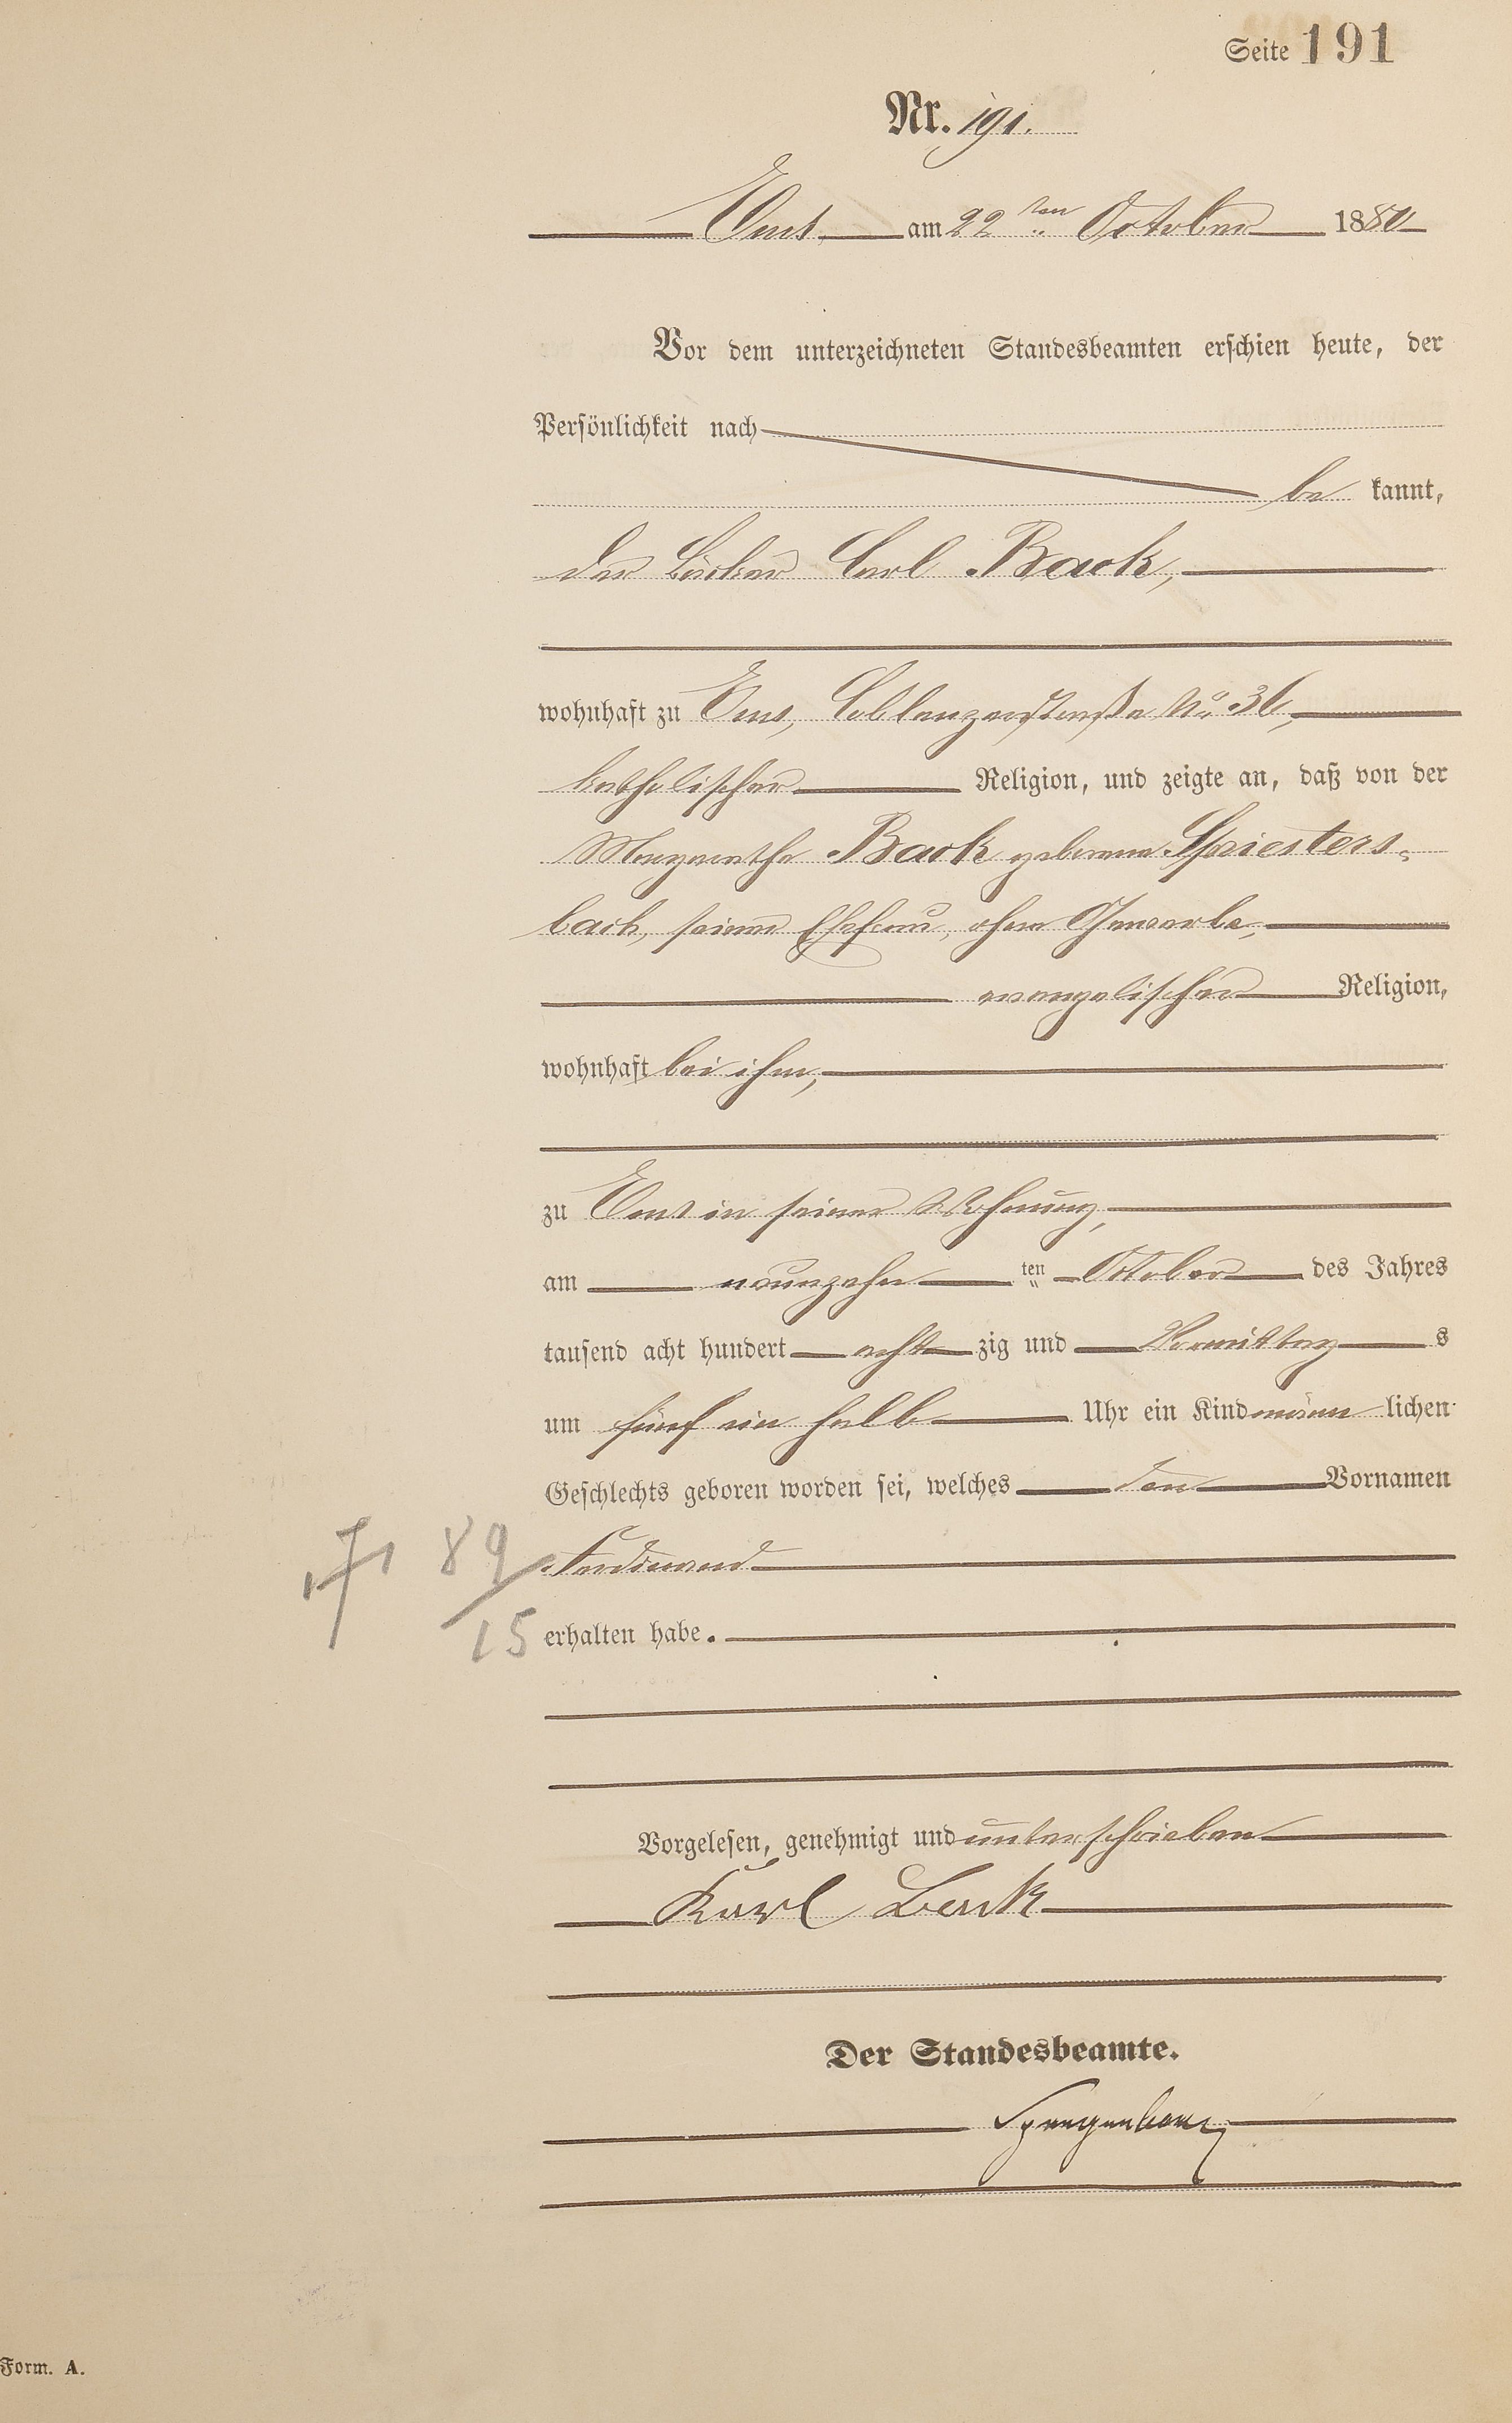 Seite 191
Nr. 191.
Ems, am 22ten October 1880
Vor dem unterzeichneten Standesbeamten erschien heute, der
Persönlichkeit nach
be kannt,
der Bäcker Carl Back,
wohnhaft zu Ems, Coblenzerstraße No 36,
katholischer Religion, und zeigte an, daß von der
Margarethe Back geborene Spriesters-
bach, seiner Ehefrau, ohne Gewerbe,
evangelischer Religion,
wohnhaft bei ihm,
zu Ems in seiner Wohnung,
am neunzehn ten October des Jahres
tausend acht hundert acht zig und Vormittag s
um fünf ein halb Uhr ein Kind männ lichen
Geschlechts geboren worden sei, welches den Vornamen
Ferdinand
† 89/15
erhalten habe.
Vorgelesen, genehmigt und unterschrieben
Karl Back
Der Standesbeamte.
Spangenberg
Form. A.